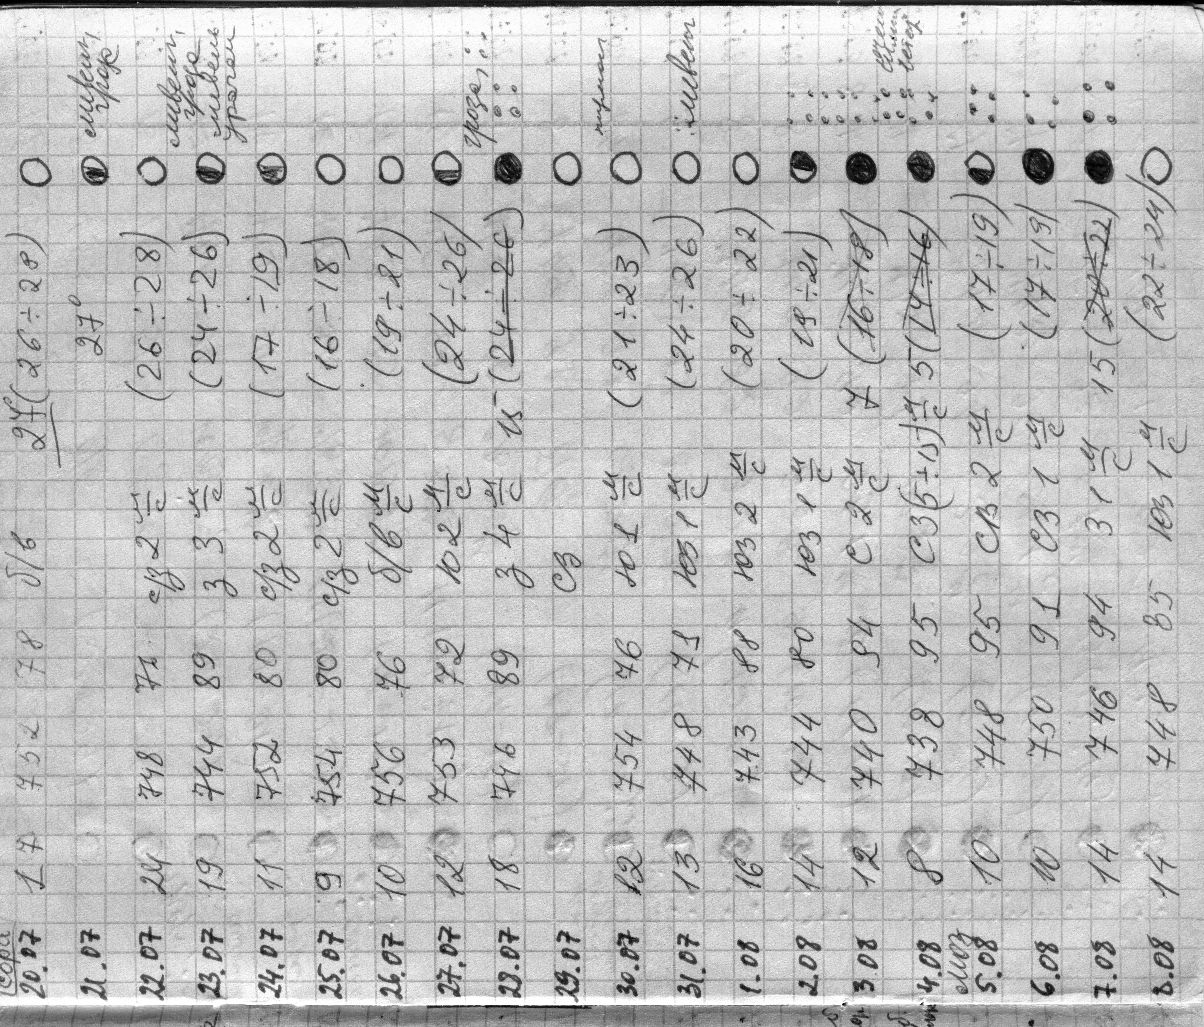 20.07 17 752 78 б/в 27° (26÷28)
21.07 27° ливень, гроза
22.07 24 748 с/з 2 м/с (26÷28) ливень, гроза
23.07 19 744 89 з 3 м/с (24÷26) ливень ураган
24.07 11 752 80 с/з 2 м/с (17÷19)
25.07 9 754 80 с/з 2 м/с (16÷18)
26.07 10 756 76 б/в м/с (19÷21)
27.07 12 753 72 ю 2 м/с (24÷26)
28.07 18 746 89 з 4 м/с 15 (24÷26) гроза
29.07 с/з
30.07 12 754 76 ю 1 м/с (21÷23)
31.07 13 748 71 юз 1 м/с (24÷26) ливень
1.08 16 743 88 юз 2 м/с (20÷22)
2.08 14 744 80 юз 1 м/с (19÷21)
3.08 12 740 94 с 2 м/с 7 (16÷18)
4.08 8 738 95 сз (5÷15) м/с 5 (14÷16) ветер
5.08 10 748 95 сз 2 м/с (17÷19)
6.08 10 750 91 сз 1 м/с (17÷19)
7.08 14 746 94 з 1 м/с 15 (20÷22)
8.08 14 748 85 юз 1 м/с (22÷24)